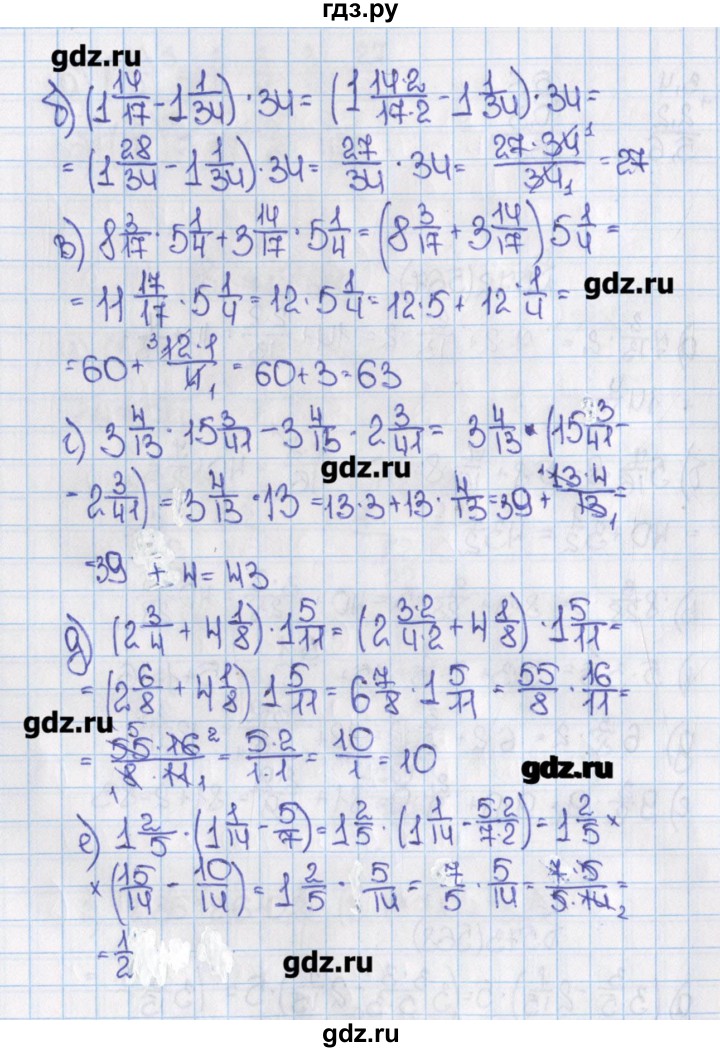 гдз.ру
gdz.ru
б) (1 14/17 - 1 1/34) · 34 = (1 14·2/17·2 - 1 1/34) · 34 =
= (1 28/34 - 1 1/34) · 34 = 27/34 · 34 = 27·34 1/34 1 = 27
в) 8 3/17 · 5 1/4 + 3 14/17 · 5 1/4 = (8 3/17 + 3 14/17) 5 1/4 =
= 11 17/17 · 5 1/4 = 12 · 5 1/4 = 12·5 + 12 · 1/4 =
gdz.ru
= 60 + 3 12·1/4 1 = 60 + 3 = 63
г) 3 4/13 · 15 3/41 - 3 4/13 · 2 3/41 = 3 4/13 · (15 3/41 -
gdz.ru
- 2 3/41) = 3 4/13 · 13 = 13·3 + 13 · 4/13 = 39 + 1 13·4/13 1 =
= 39 + 4 = 43
д) (2 3/4 + 4 1/8) · 1 5/11 = (2 3·2/4·2 + 4 1/8) · 1 5/11 =
= (2 6/8 + 4 1/8) 1 5/11 = 6 7/8 · 1 5/11 = 55/8 · 16/11 =
gdz.ru
= 5 55·16 2/1 8·11 1 = 5·2/1·1 = 10/1 = 10
gdz.ru
е) 1 2/5 · (1 1/14 - 5/7) = 1 2/5 · (1 1/14 - 5·2/7·2) = 1 2/5 ×
× (15/14 - 10/14) = 1 2/5 · 5/14 = 7/5 · 5/14 = 7·5/5·14 2 =
= 1/2
gdz.ru
gdz.ru